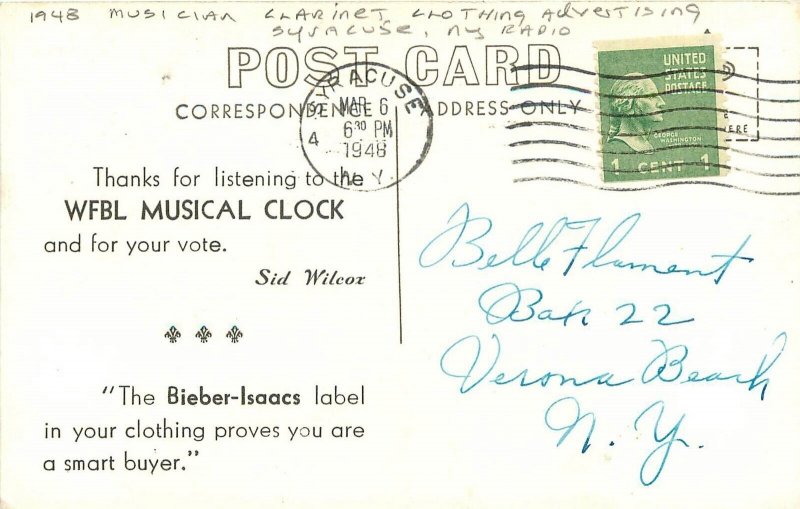 1948 MUSICIAN CLARINET CLOTHING AdverTISING
SYRACUSE, NY RADIO
POST CARD
CORRESPONDENCE ADDRESS ONLY
SYRACUSE
MAR 6
6 30 PM
1948
N.Y.
4
UNITED
STATES
POSTAGE
GEORGE
WASHINGTON
1 CENT 1
HERE
Thanks for listening to the
WFBL MUSICAL CLOCK
and for your vote.
Sid Wilcox
"The Bieber-Isaacs label
in your clothing proves you are
a smart buyer."
Belle Flament
Box 22
Verona Beach
N.Y.